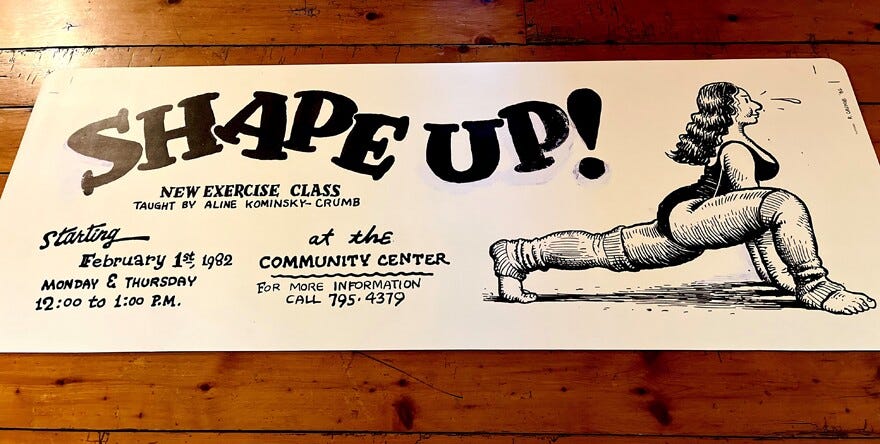 SHAPE UP!
NEW EXERCISE CLASS
TAUGHT BY ALINE KOMINSKY-CRUMB
Starting
February 1st, 1982
MONDAY & THURSDAY
12:00 to 1:00 P.M.
at the
COMMUNITY CENTER
FOR MORE INFORMATION
CALL 795·4379
R. CRUMB '82